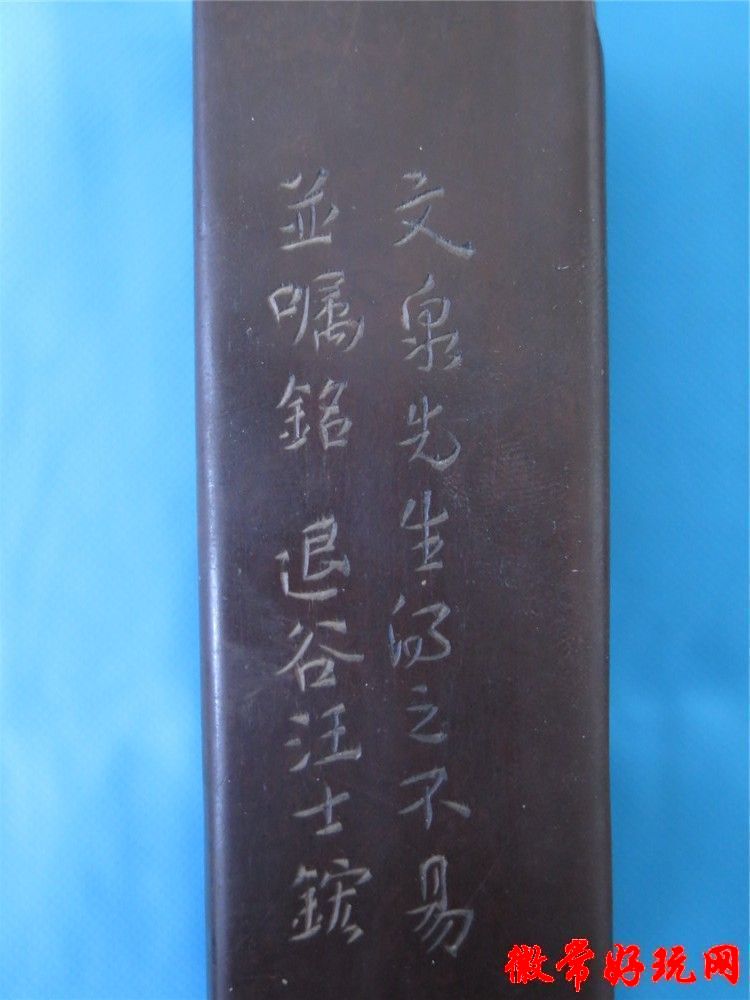 文泉先生得之不易
並嘱銘 退谷汪士鋐
徽常好玩网